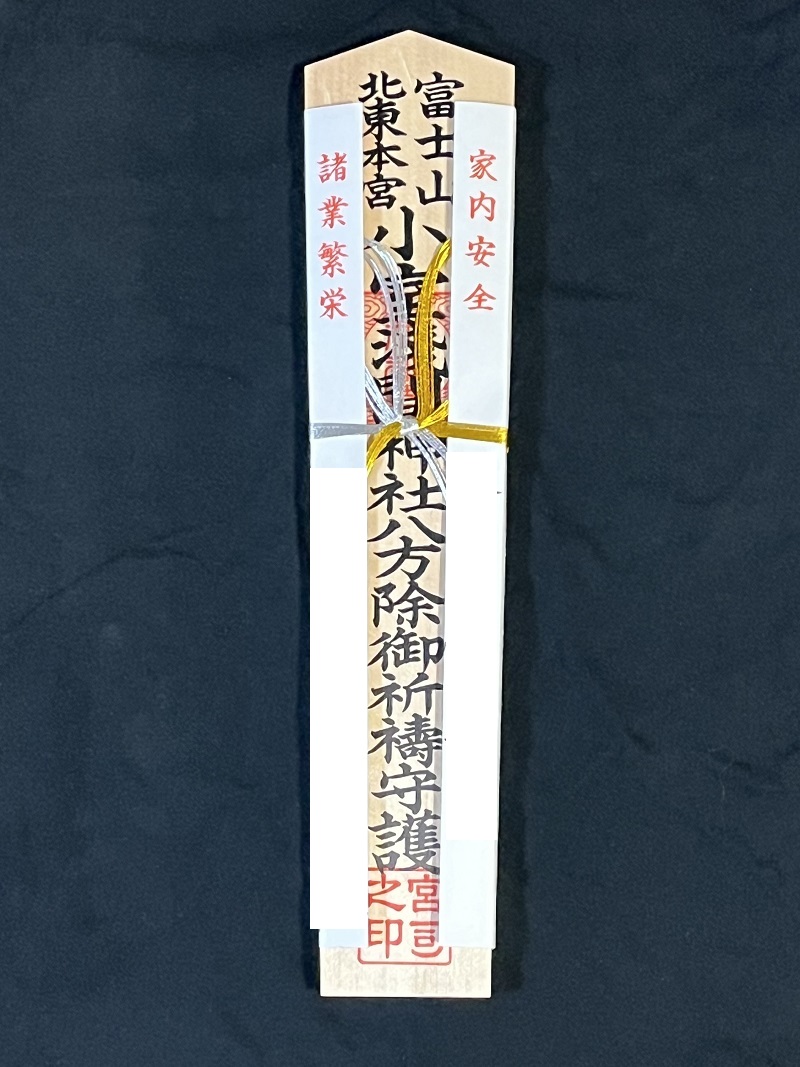 家内安全
富士山
北東本宮
小室浅間神社八方除御祈禱守護
諸業繁栄
宮司
之印